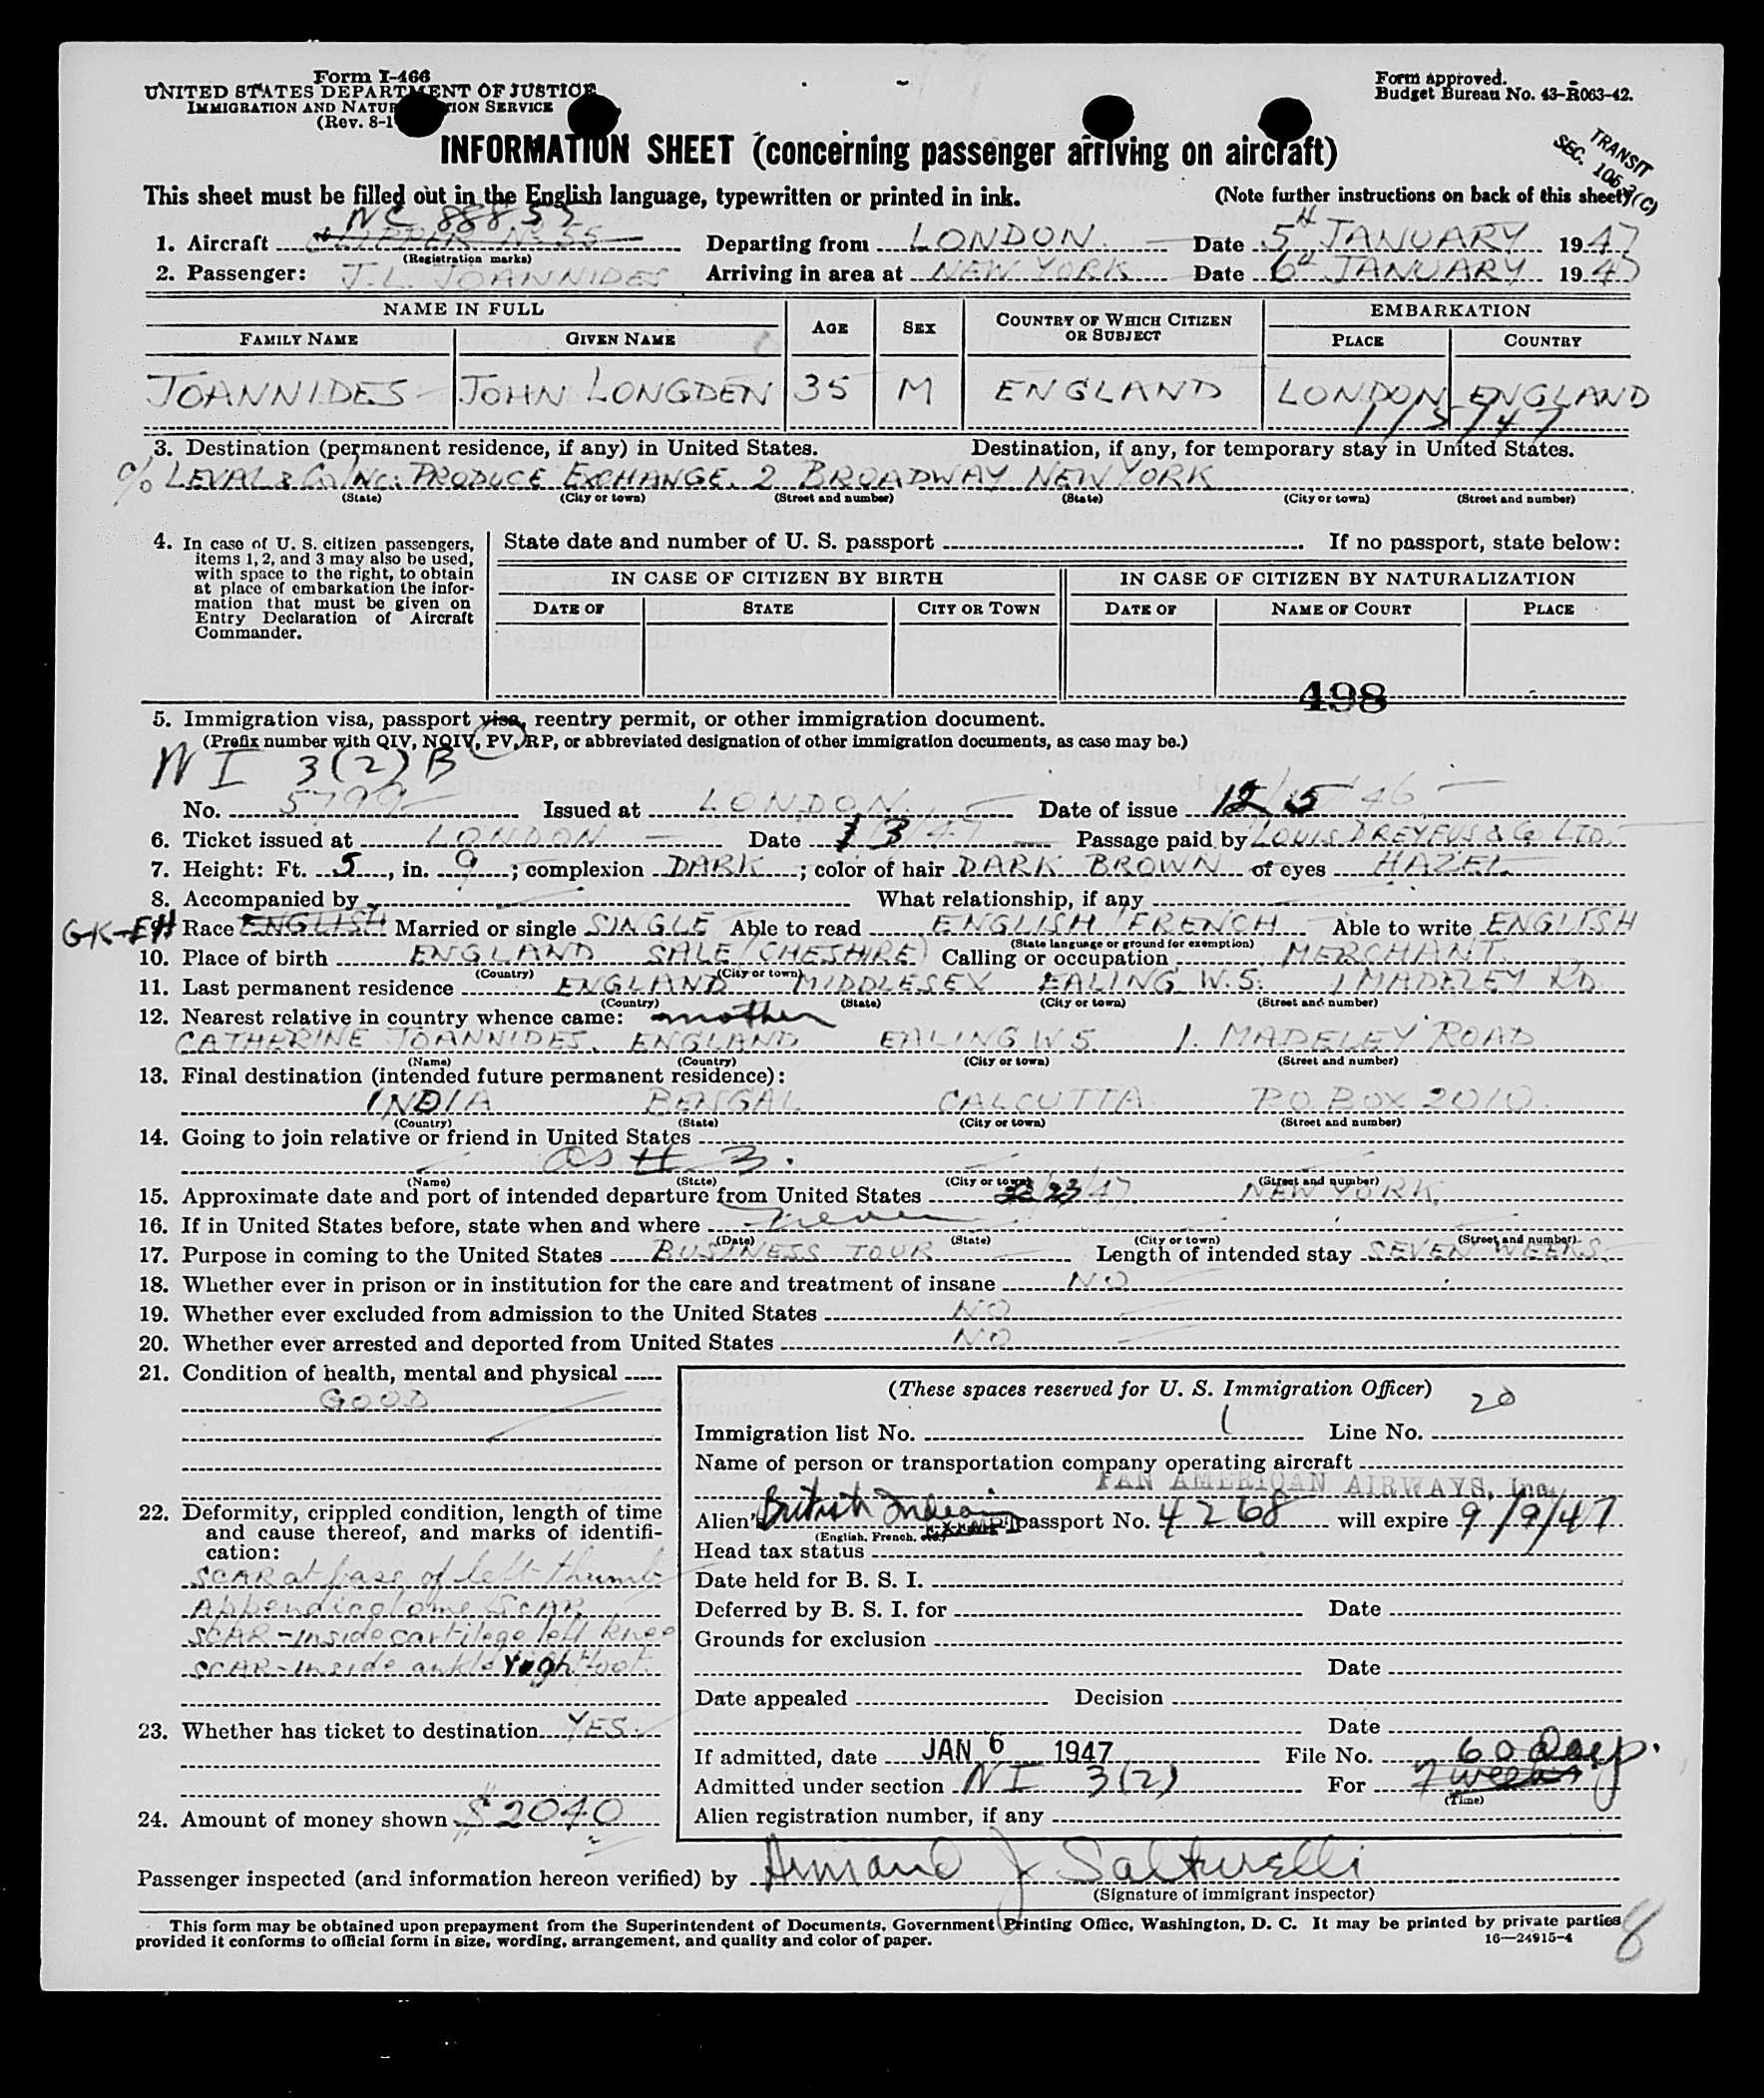 Form I-466
UNITED STATES DEPARTMENT OF JUSTICE
IMMIGRATION AND NATURALIZATION SERVICE
(Rev. 8-1
Form approved.
Budget Bureau No. 43-R063-42.
TRANSIT
SEC. 106.3(C)
INFORMATION SHEET (concerning passenger arriving on aircraft)
This sheet must be filled out in the English language, typewritten or printed in ink. (Note further instructions on back of this sheet)
NC 88855
1. Aircraft CLIPPER No 55 Departing from LONDON. Date 5th JANUARY 1947
(Registration marks)
2. Passenger: J.L. JOANNIDES Arriving in area at NEW YORK Date 6th JANUARY 1947
NAME IN FULL AGE SEX COUNTRY OF WHICH CITIZEN OR SUBJECT EMBARKATION
FAMILY NAME GIVEN NAME PLACE COUNTRY
JOANNIDES JOHN LONGDEN 35 M ENGLAND LONDON ENGLAND
1/5/47
3. Destination (permanent residence, if any) in United States. Destination, if any, for temporary stay in United States.
c/o LEVAL & Co INC: PRODUCE EXCHANGE. 2 BROADWAY NEW YORK
(State) (City or town) (Street and number) (State) (City or town) (Street and number)
4. In case of U. S. citizen passengers, items 1, 2, and 3 may also be used, with space to the right, to obtain at place of embarkation the information that must be given on Entry Declaration of Aircraft Commander.
State date and number of U. S. passport If no passport, state below:
IN CASE OF CITIZEN BY BIRTH IN CASE OF CITIZEN BY NATURALIZATION
DATE OF STATE CITY OR TOWN DATE OF NAME OF COURT PLACE
498
5. Immigration visa, passport visa, reentry permit, or other immigration document.
(Prefix number with QIV, NQIV, PV, RP, or abbreviated designation of other immigration documents, as case may be.)
NI 3(2) B
No. 5799 Issued at LONDON. Date of issue 12/5/46
6. Ticket issued at LONDON Date 1/3/47 Passage paid by LOUIS DREYFUS & Co LTD.
7. Height: Ft. 5, in. 9; complexion DARK; color of hair DARK BROWN of eyes HAZEL
8. Accompanied by What relationship, if any
GK-EH Race ENGLISH Married or single SINGLE Able to read ENGLISH FRENCH Able to write ENGLISH
(State language or ground for exemption)
10. Place of birth ENGLAND SALE (CHESHIRE) Calling or occupation MERCHANT.
(Country) (City or town)
11. Last permanent residence ENGLAND MIDDLESEX EALING W.5. 1 MADELEY RD
(Country) (State) (City or town) (Street and number)
12. Nearest relative in country whence came: mother
CATHERINE JOANNIDES. ENGLAND EALING W5 1. MADELEY ROAD
(Name) (Country) (City or town) (Street and number)
13. Final destination (intended future permanent residence):
INDIA BENGAL CALCUTTA P.O. BOX 2010.
(Country) (State) (City or town) (Street and number)
14. Going to join relative or friend in United States
as # 3.
(Name) (State) (City or town) (Street and number)
15. Approximate date and port of intended departure from United States 23/47 NEW YORK.
16. If in United States before, state when and where Never
(Date) (State) (City or town) (Street and number)
17. Purpose in coming to the United States BUSINESS TOUR Length of intended stay SEVEN WEEKS
18. Whether ever in prison or in institution for the care and treatment of insane NO
19. Whether ever excluded from admission to the United States NO
20. Whether ever arrested and deported from United States NO
21. Condition of health, mental and physical
GOOD
22. Deformity, crippled condition, length of time and cause thereof, and marks of identification:
SCAR at base of left thumb
Appendicotome SCAR
SCAR - inside cartilege left knee
SCAR - inside ankle right foot.
23. Whether has ticket to destination YES.
24. Amount of money shown $2040
(These spaces reserved for U. S. Immigration Officer)
Immigration list No. 1 Line No. 20
Name of person or transportation company operating aircraft
PAN AMERICAN AIRWAYS, Inc.
Alien's British Indian passport No. 4268 will expire 9/9/47
(English, French, etc.)
Head tax status
Date held for B. S. I.
Deferred by B. S. I. for Date
Grounds for exclusion
Date
Date appealed Decision
Date
If admitted, date JAN 6 1947 File No. 60 Days.
Admitted under section NI 3(2) For 7 weeks
(Time)
Alien registration number, if any
Passenger inspected (and information hereon verified) by Armand J Salturelli
(Signature of immigrant inspector)
This form may be obtained upon prepayment from the Superintendent of Documents, Government Printing Office, Washington, D. C. It may be printed by private parties
provided it conforms to official form in size, wording, arrangement, and quality and color of paper.
16—24915-4
8